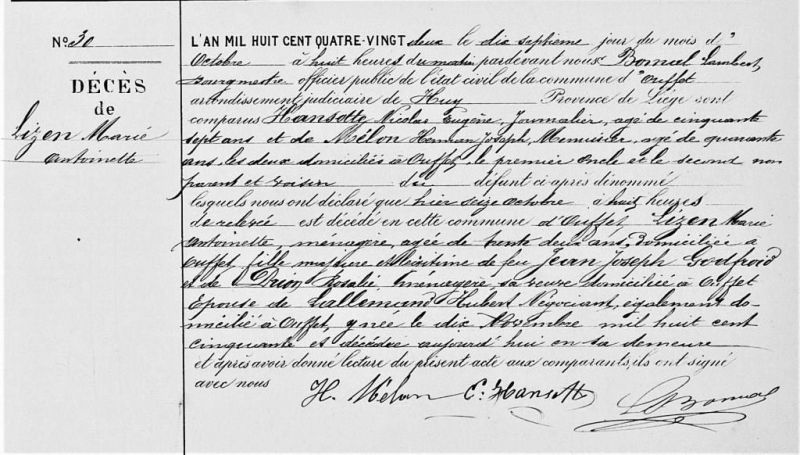 N° 30
DÉCÈS
de
Lizen Marie
Antoinette
L'AN MIL HUIT CENT QUATRE-VINGT deux le dix septième jour du mois d'
Octobre à huit heures du matin pardevant nous Bonual Lambert,
Bourgmestre officier public de l'état civil de la commune d'Ouffet
arrondissement judiciaire de Huy Province de Liège sont
comparus Hansotte Nicolas Eugène, Journalier, agé de cinquante
sept ans et de Mélon Herman Joseph, Menuisier, agé de quarante
ans, les deux domiciliés à Ouffet, le premier oncle et le second non
parent et voisin du défunt ci-après dénommé
lesquels nous ont déclaré que hier seize Octobre à huit heures
de relevée est décédé en cette commune d'Ouffet Lizen Marie
Antoinette, ménagère, agée de trente deux ans, domiciliée à
Ouffet, fille majeure et légitime de feu Jean Joseph Godfroid
et de Drion Rosalie, menagère, sa veuve domiciliée à Ouffet
Epouse de Lallemand Hubert Négociant, également do-
micilié à Ouffet, y née le dix Novembre mil huit cent
cinquante et décédée aujourd'hui en sa demeure
et après avoir donné lecture du présent acte aux comparants, ils ont signé
avec nous
H. Mélon E. Hansotte